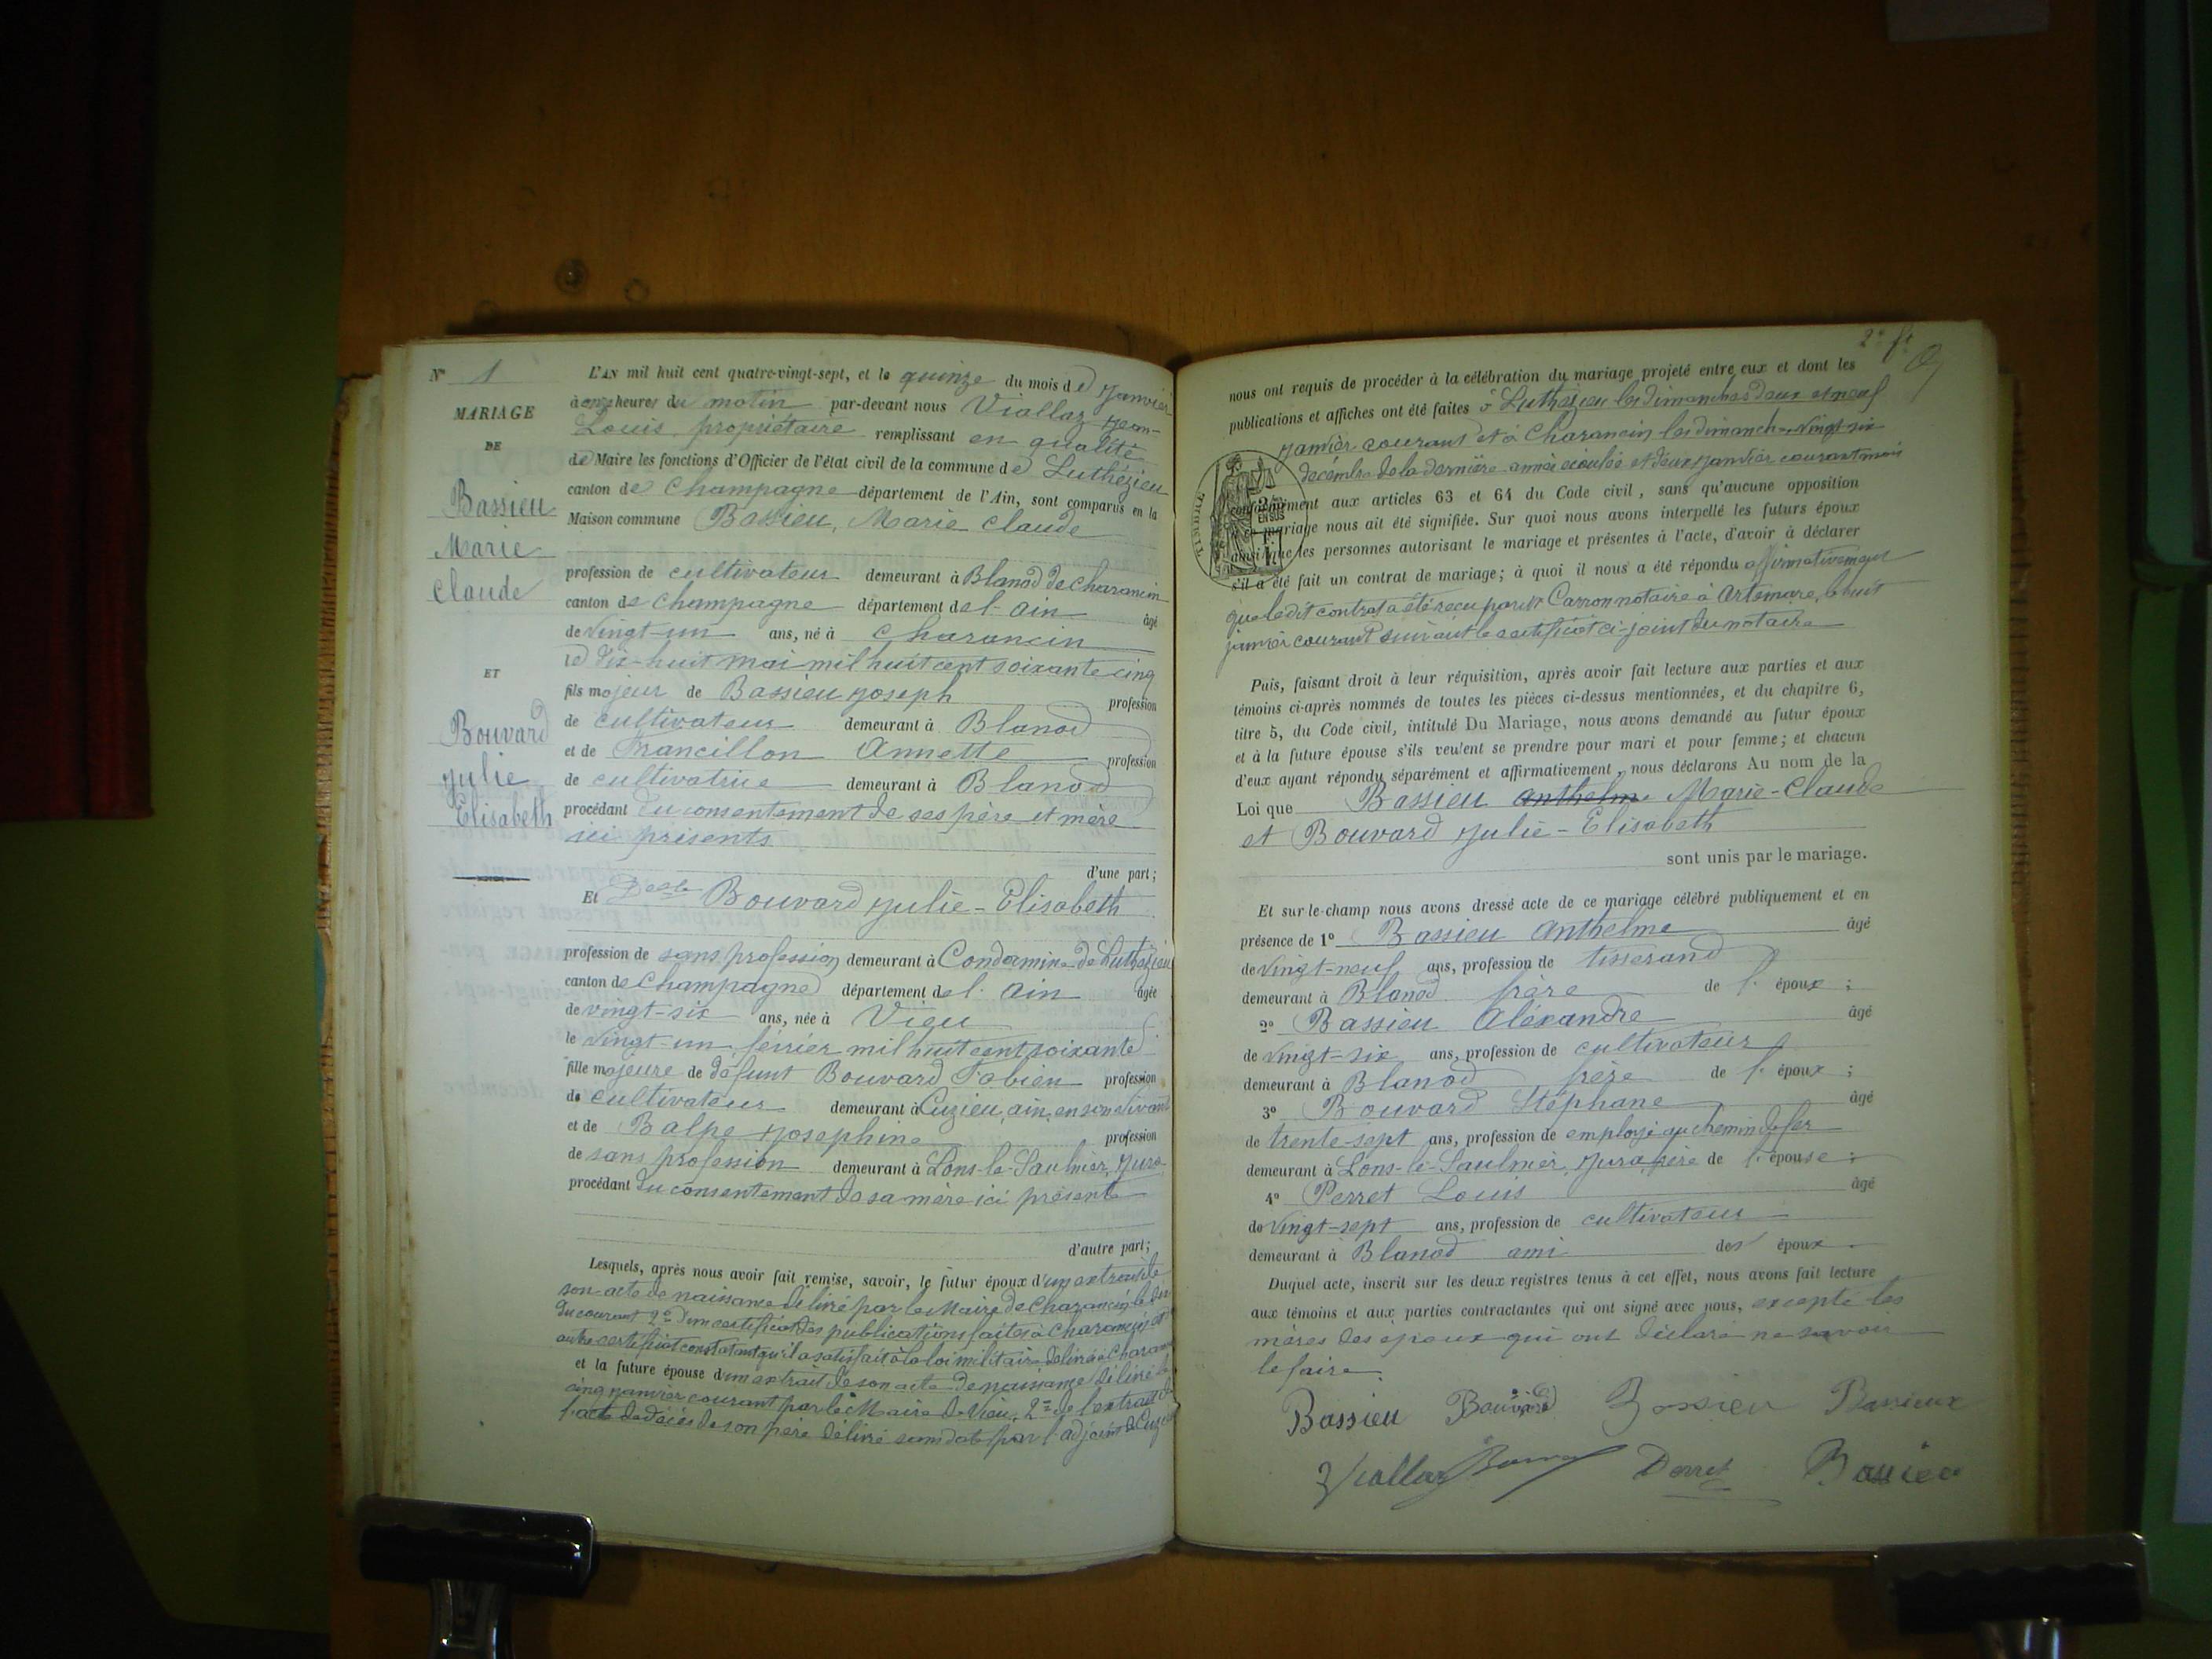 N° 1
MARIAGE
DE
Bassieu
Marie
Claude
ET
Bouvard
Julie
Elisabeth
L'AN mil huit cent quatre-vingt-sept, et le quinze du mois de Janvier
à onze heures du matin par-devant nous Viallaz Jean-
Louis, propriétaire remplissant en qualité
de Maire les fonctions d'Officier de l'état civil de la commune de Luthézieu
canton de Champagne département de l'Ain, sont comparus en la
Maison commune Bassieu, Marie Claude
profession de cultivateur demeurant à Blanod de Charancin
canton de Champagne département de l'Ain âgé
de vingt-un ans, né à Charancin
le dix-huit mai mil huit cent soixante cinq
fils majeur de Bassieu Joseph profession
de cultivateur demeurant à Blanod
et de Francillon Annette profession
de cultivatrice demeurant à Blanod
procédant du consentement de ses père et mère
ici présents
d'une part;
Et Delle Bouvard Julie-Elisabeth
profession de sans profession demeurant à Condamine de Luthézieu
canton de Champagne département de l'Ain âgée
de vingt-six ans, née à Vieu
le vingt-un février mil huit cent soixante
fille majeure de défunt Bouvard Fabien profession
de cultivateur demeurant à Cuzieu, ain, en son vivant
et de Balpe Josephine profession
de sans profession demeurant à Lons-le-Saulnier, Jura,
procédant du consentement de sa mère ici présente
d'autre part;
Lesquels, après nous avoir fait remise, savoir, le futur époux d'un extrait de
son acte de naissance délivré par le Maire de Charancin le
du courant 2° d'un certificat des publications faites à Charancin et
autre certificat constatant qu'il a satisfait à la loi militaire délivré à
et la future épouse d'un extrait de son acte de naissance délivré le
cinq janvier courant par le Maire de Vieu, 2° de l'extrait de
l'acte de décès de son père délivré sans date par l'adjoint de
2e ft
nous ont requis de procéder à la célébration du mariage projeté entre eux et dont les
publications et affiches ont été faites à Luthézieu les dimanches deux et neuf
janvier courant et à Charancin les dimanches vingt-six
décembre de la dernière année écoulée et deux janvier courant mois
TIMBRE
EN SUS
conformément aux articles 63 et 64 du Code civil, sans qu'aucune opposition
à ce mariage nous ait été signifiée. Sur quoi nous avons interpellé les futurs époux
ainsi que les personnes autorisant le mariage et présentes à l'acte, d'avoir à déclarer
s'il a été fait un contrat de mariage; à quoi il nous a été répondu affirmativement
que le dit contrat a été reçu par Me Carron notaire à Artemare, le huit
janvier courant suivant le certificat ci-joint du notaire
Puis, faisant droit à leur réquisition, après avoir fait lecture aux parties et aux
témoins ci-après nommés de toutes les pièces ci-dessus mentionnées, et du chapitre 6,
titre 5, du Code civil, intitulé Du Mariage, nous avons demandé au futur époux
et à la future épouse s'ils veulent se prendre pour mari et pour femme; et chacun
d'eux ayant répondu séparément et affirmativement, nous déclarons Au nom de la
Loi que Bassieu Anthelme Marie-Claude
et Bouvard Julie-Elisabeth
sont unis par le mariage.
Et sur-le-champ nous avons dressé acte de ce mariage célébré publiquement et en
présence de 1° Bassieu Anthelme âgé
de vingt-neuf ans, profession de tisserand
demeurant à Blanod frère de l'époux;
2° Bassieu Aléxandre âgé
de vingt-six ans, profession de cultivateur
demeurant à Blanod frère de l'époux;
3° Bouvard Stéphane âgé
de trente-sept ans, profession de employé au chemin de fer
demeurant à Lons-le-Saulnier, Jura, frère de l'épouse;
4° Perret Louis âgé
de vingt-sept ans, profession de cultivateur
demeurant à Blanod ami de l'époux.
Duquel acte, inscrit sur les deux registres tenus à cet effet, nous avons fait lecture
aux témoins et aux parties contractantes qui ont signé avec nous, excepté les
mères des époux qui ont déclaré ne savoir
le faire.
Bassieu Bouvard Bassieu Bassieux
Viallaz Perret Bassieu